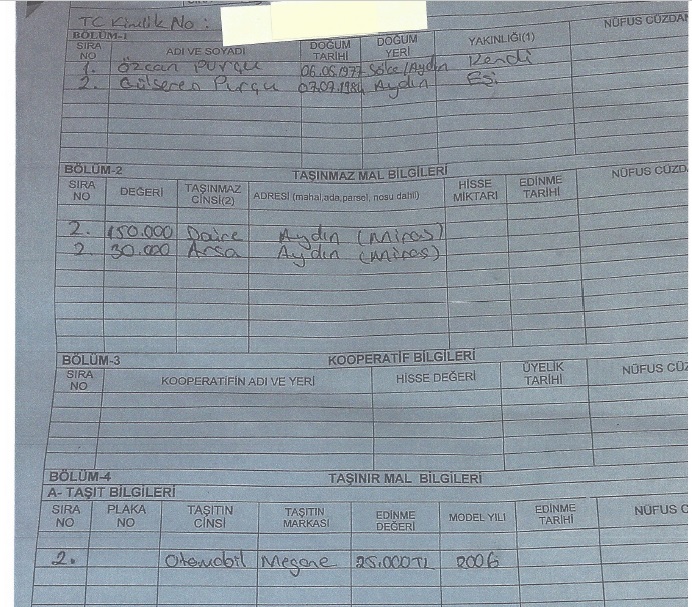 TC Kimlik No :
BÖLÜM-1
SIRA NO ADI VE SOYADI DOĞUM TARİHİ DOĞUM YERİ YAKINLIĞI(1) NÜFUS CÜZDAN
1. Özcan PURÇU 06.05.1977 Söke/Aydın Kendi
2. Gülseren Purçu 07.07.1984 Aydın Eşi
BÖLÜM-2 TAŞINMAZ MAL BİLGİLERİ
SIRA NO DEĞERİ TAŞINMAZ CİNSİ(2) ADRESİ (mahal,ada,parsel, nosu dahil) HİSSE MİKTARI EDİNME TARİHİ NÜFUS CÜZD
2. 150.000 Daire Aydın (Miras)
2 30.000 Arsa Aydın (Miras)
BÖLÜM-3 KOOPERATİF BİLGİLERİ
SIRA NO KOOPERATİFİN ADI VE YERİ HİSSE DEĞERİ ÜYELİK TARİHİ NÜFUS CÜZ
BÖLÜM-4 TAŞINIR MAL BİLGİLERİ
A- TAŞIT BİLGİLERİ
SIRA NO PLAKA NO TAŞITIN CİNSİ TAŞITIN MARKASI EDİNME DEĞERİ MODEL YILI EDİNME TARİHİ NÜFUS C
2. Otomobil Megane 25.000TL 2006